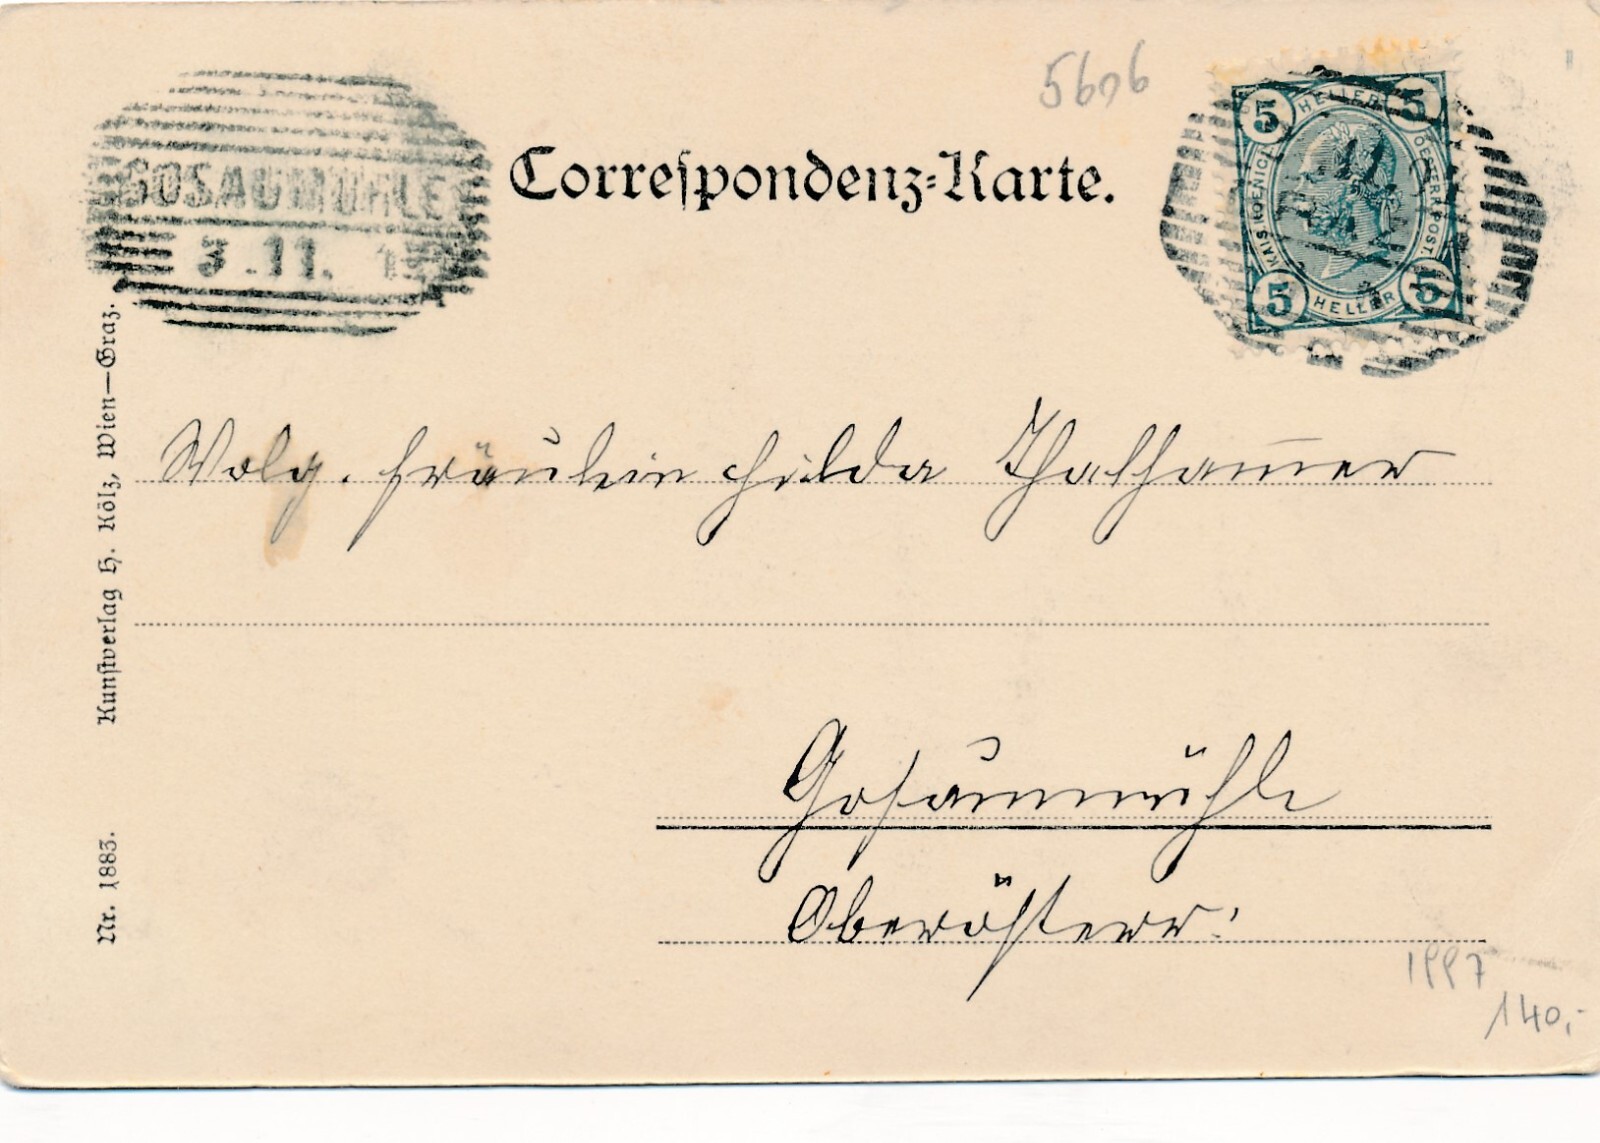 5606
Correspondenz-Karte.
GOSAUMÜHLE
3.11.
5 HELLER 5
KAIS. KOENIGL.
OESTERR. POST.
5 HELLER 5
11.
Wolg. Fräulein Hilda Thalham̅er
Gosaumühle
Oberösterr.
Kunstverlag H. Kölz, Wien—Graz.
Nr. 1883.
1997
140,-